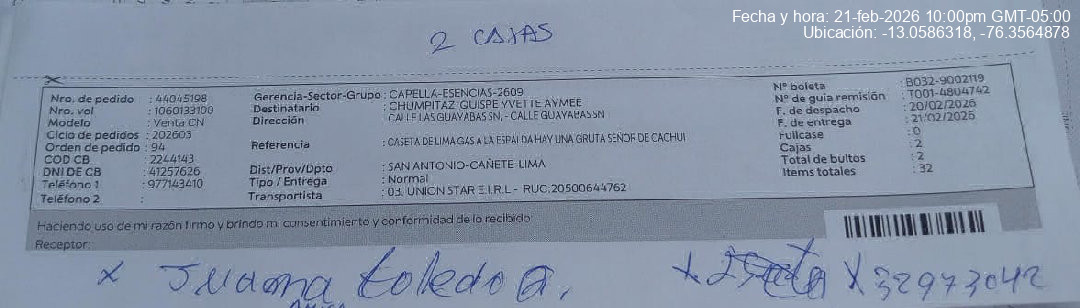 Fecha y hora: 21-feb-2026 10:00pm GMT-05:00
Ubicación: -13.0586318, -76.3564878
2 CAJAS
Nro. de pedido : 44045198
Nro. vol : 1060133100
Modelo : Venta CN
Ciclo de pedidos : 202603
Orden de pedido : 94
COD CB : 2244143
DNI DE CB : 41257626
Teléfono 1 : 977143410
Teléfono 2 :
Gerencia-Sector-Grupo : CAPELLA-ESENCIAS-2609
Destinatario : CHUMPITAZ QUISPE YVETTE AYMEE
Dirección : CALLE LAS GUAYABAS SN, - CALLE GUAYABAS SN
Referencia : CASETA DE LIMAGAS A LA ESPALDA HAY UNA GRUTA SEÑOR DE CACHUI
Dist/Prov/Dpto : SAN ANTONIO-CAÑETE-LIMA
Tipo / Entrega : Normal
Transportista : 03. UNION STAR E.I.R.L - RUC.20500644762
Nº boleta : B032-9002119
Nº de guía remisión : T001-4804742
F. de despacho : 20/02/2026
F. de entrega : 21/02/2026
Fullcase : 0
Cajas : 2
Total de bultos : 2
Items totales : 32
Haciendo uso de mi razón firmo y brindo mi consentimiento y conformidad de lo recibido
Receptor:
x Juana toledo a. x x 32973042